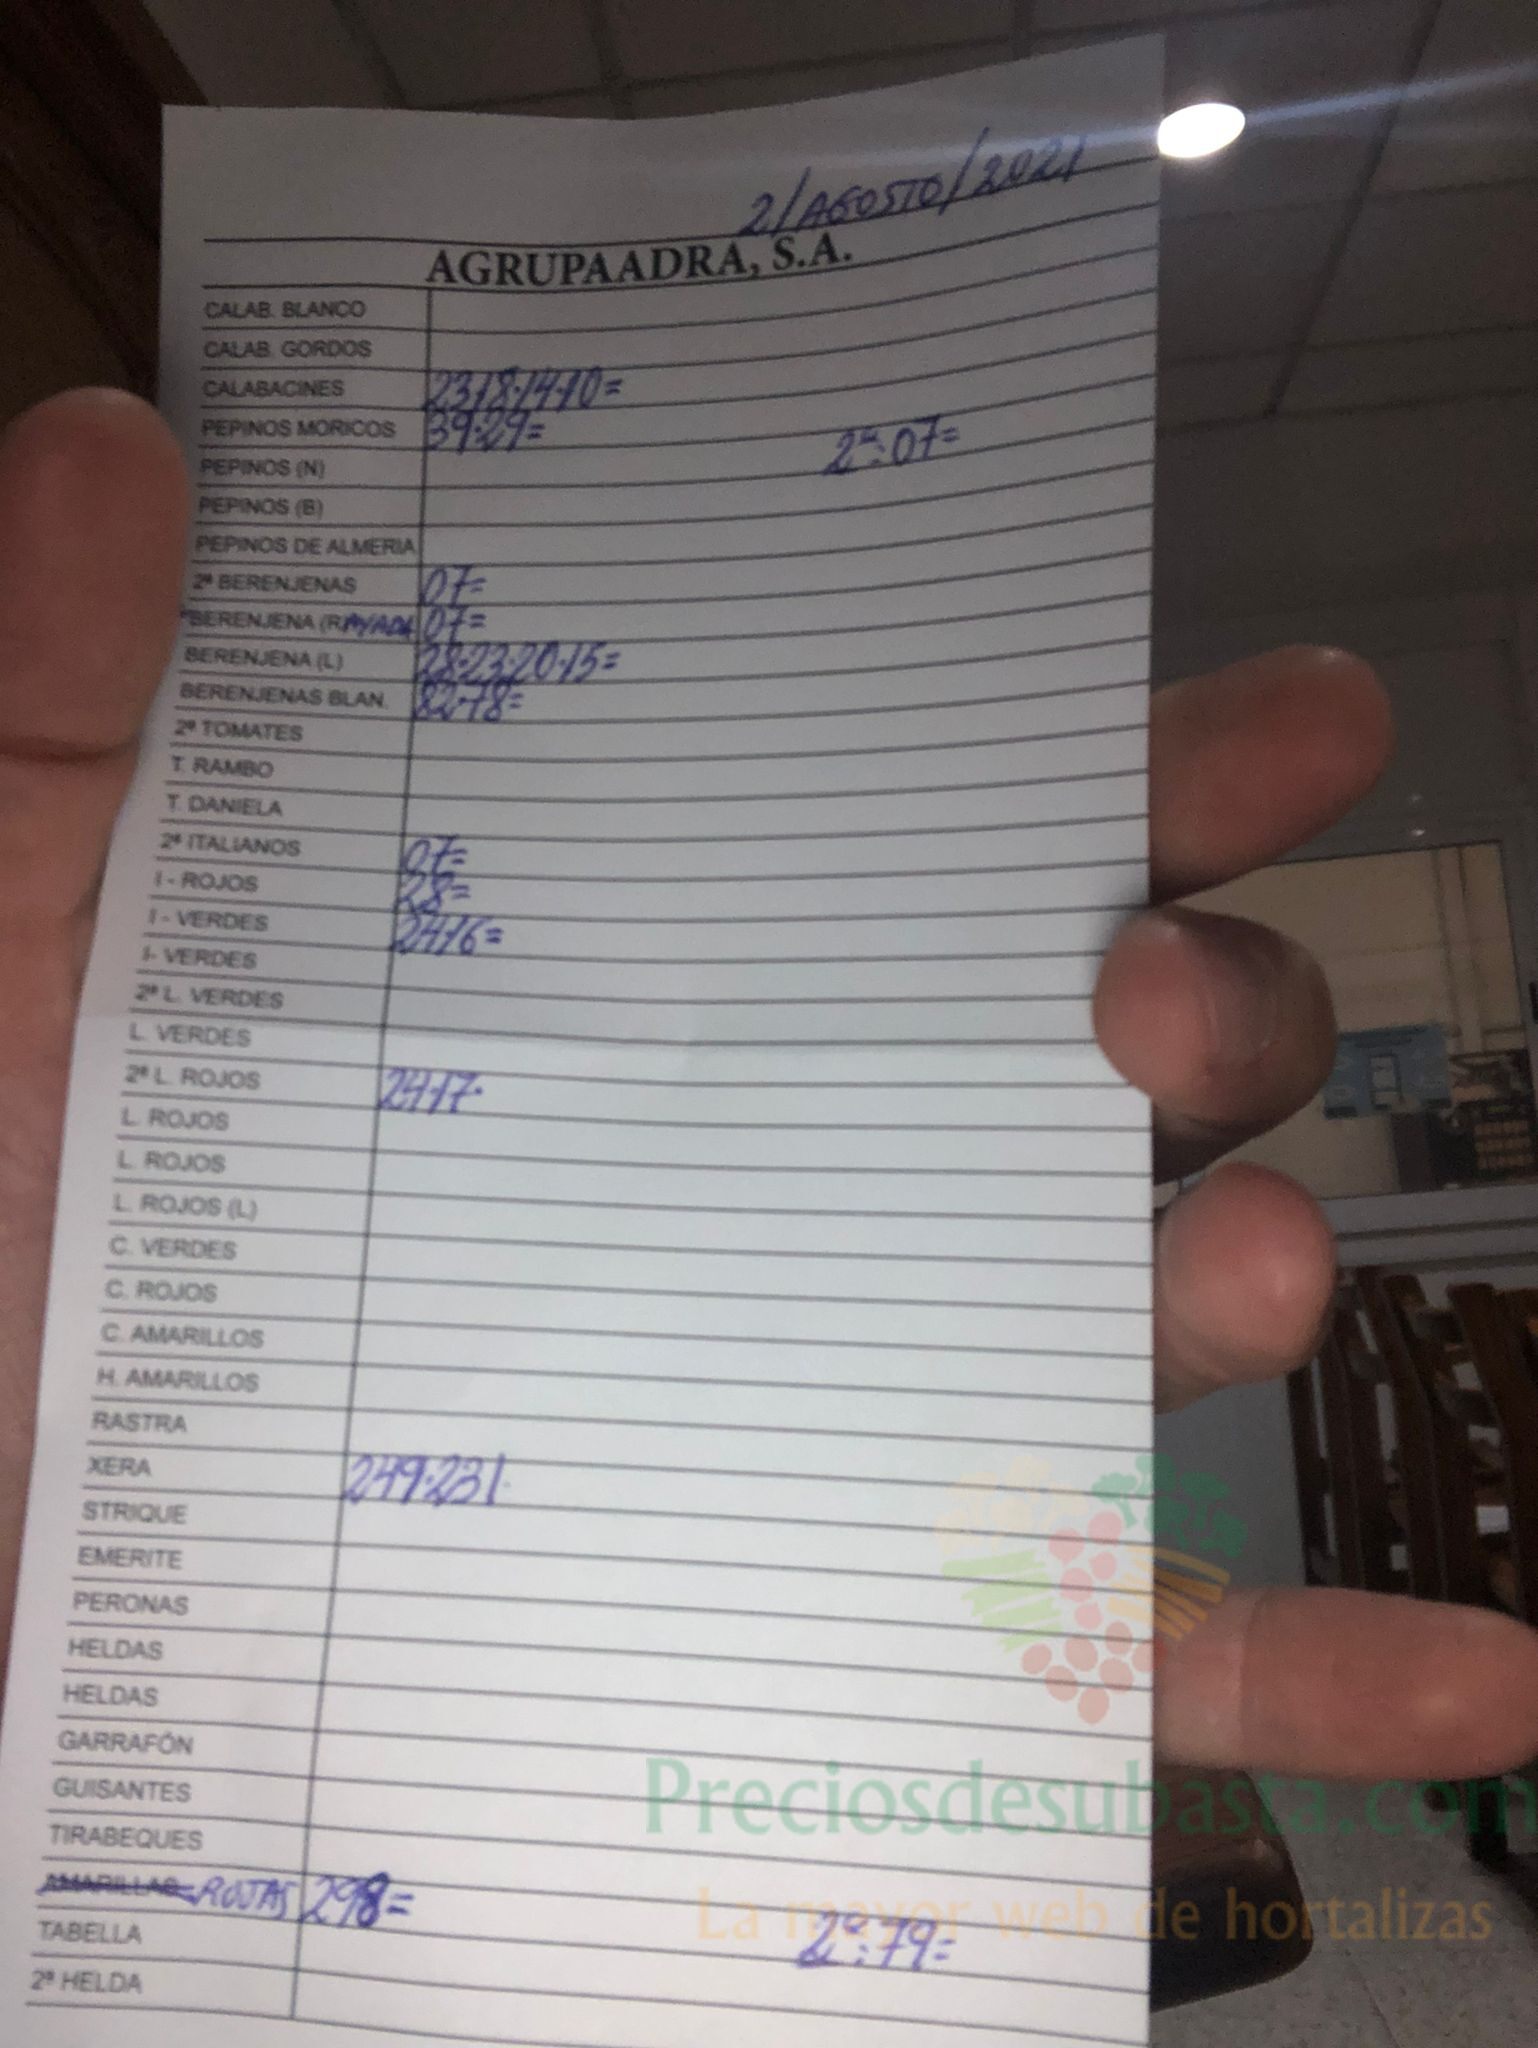 2/AGOSTO/2021
AGRUPAADRA, S.A.
CALAB. BLANCO
CALAB. GORDOS
CALABACINES 23·18·14·10=
PEPINOS MORICOS 39·29= 2ª:07=
PEPINOS (N)
PEPINOS (B)
PEPINOS DE ALMERIA
2ª BERENJENAS 07=
BERENJENA (RAYADA 07=
BERENJENA (L) 28·23·20·15=
BERENJENAS BLAN. 82·78=
2ª TOMATES
T. RAMBO
T. DANIELA
2ª ITALIANOS 07=
I - ROJOS 28=
I - VERDES 24·16=
I- VERDES
2ª L. VERDES
L. VERDES
2ª L. ROJOS 24·17·
L. ROJOS
L. ROJOS
L. ROJOS (L)
C. VERDES
C. ROJOS
C. AMARILLOS
H. AMARILLOS
RASTRA
XERA 249·231·
STRIQUE
EMERITE
PERONAS
HELDAS
HELDAS
GARRAFÓN
GUISANTES
TIRABEQUES
AMARILLAS ROJAS 298=
TABELLA 2ª:79=
2ª HELDA
Preciosdesubasta.com
La mayor web de hortalizas